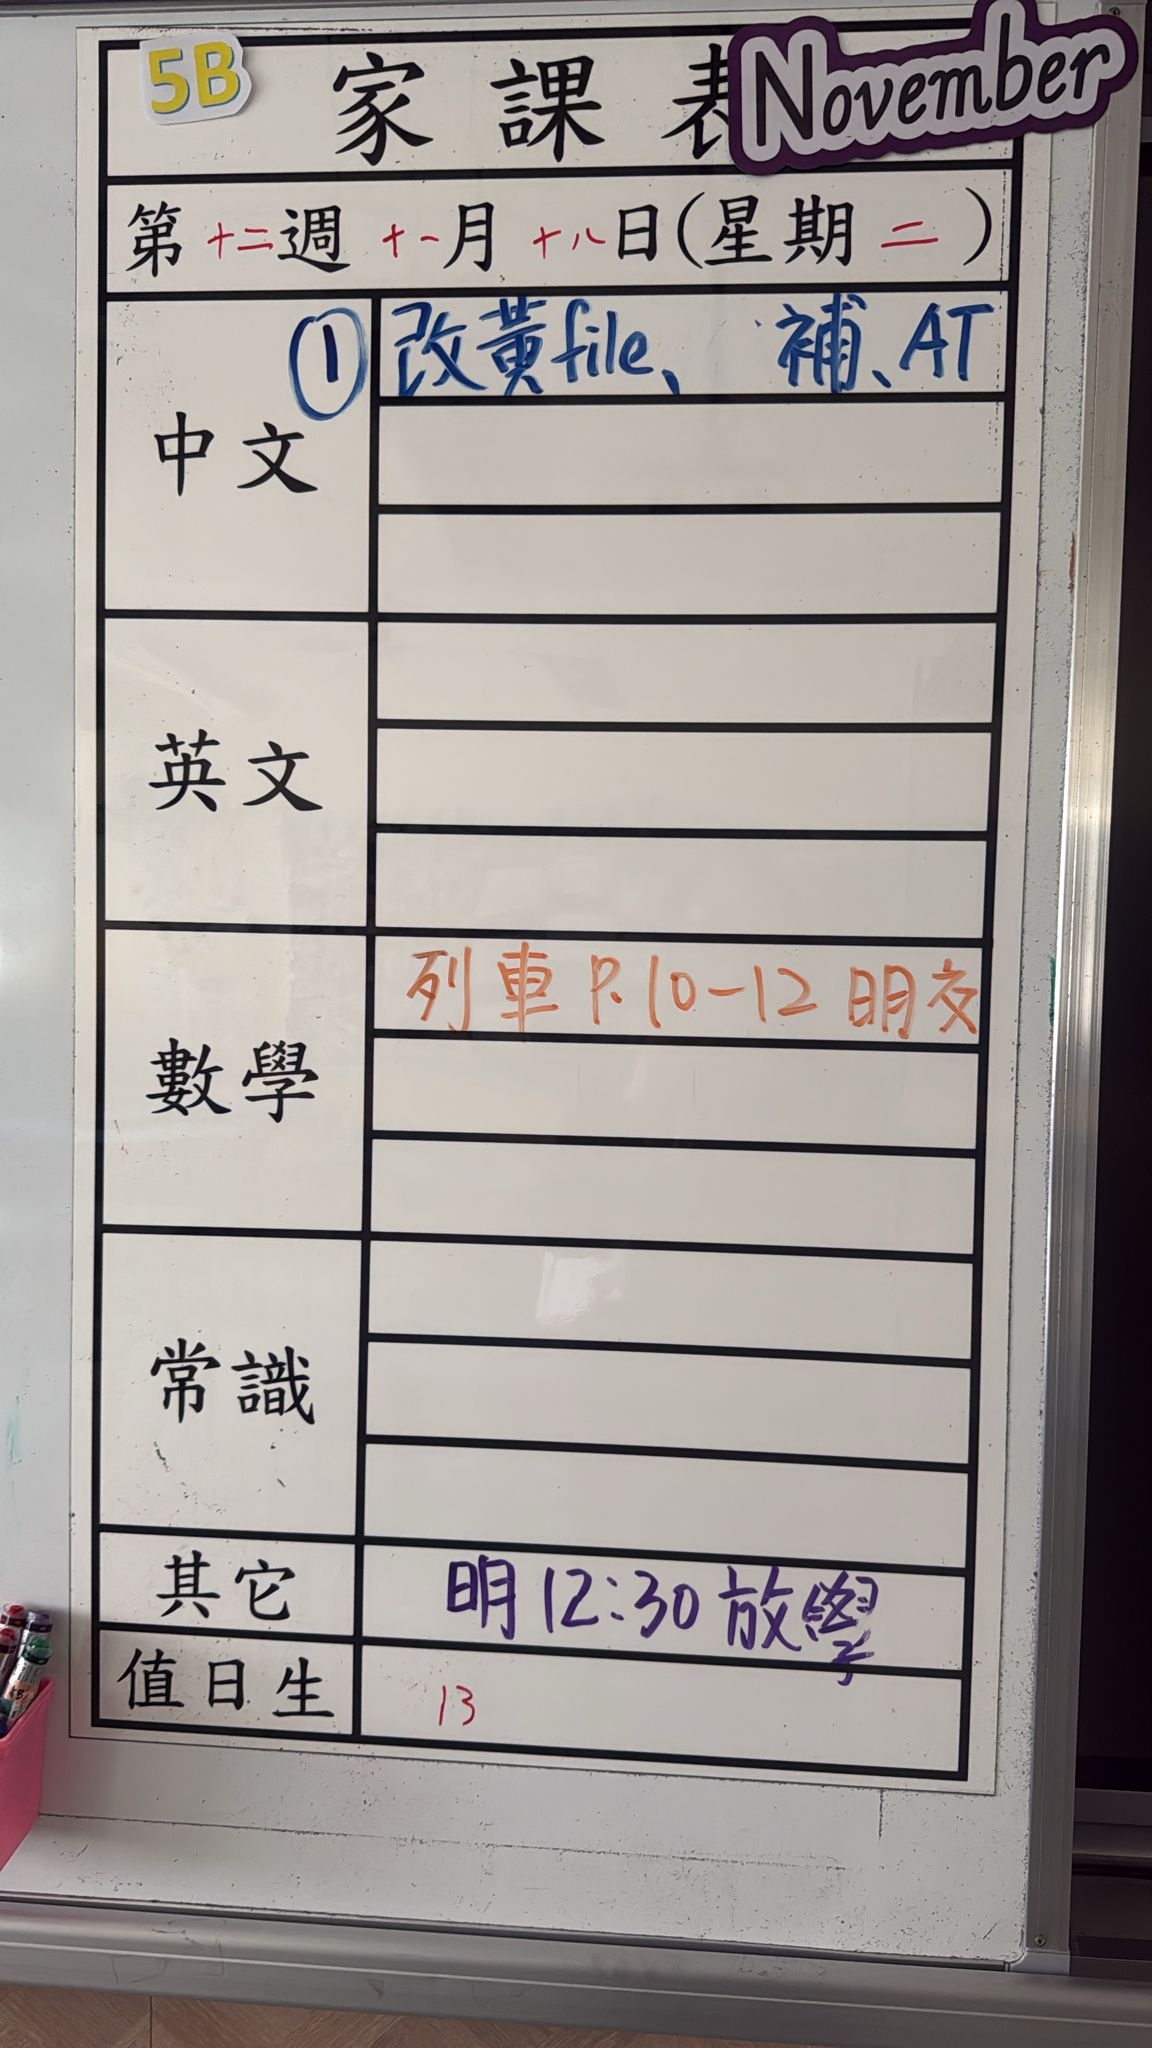 5B 家課表 November
第十二週 十一月十八日(星期二)
中文 ① 改黃file、 補、AT
英文
數學 列車 P.10-12 明交
常識
其它 明12:30放學
值日生 13